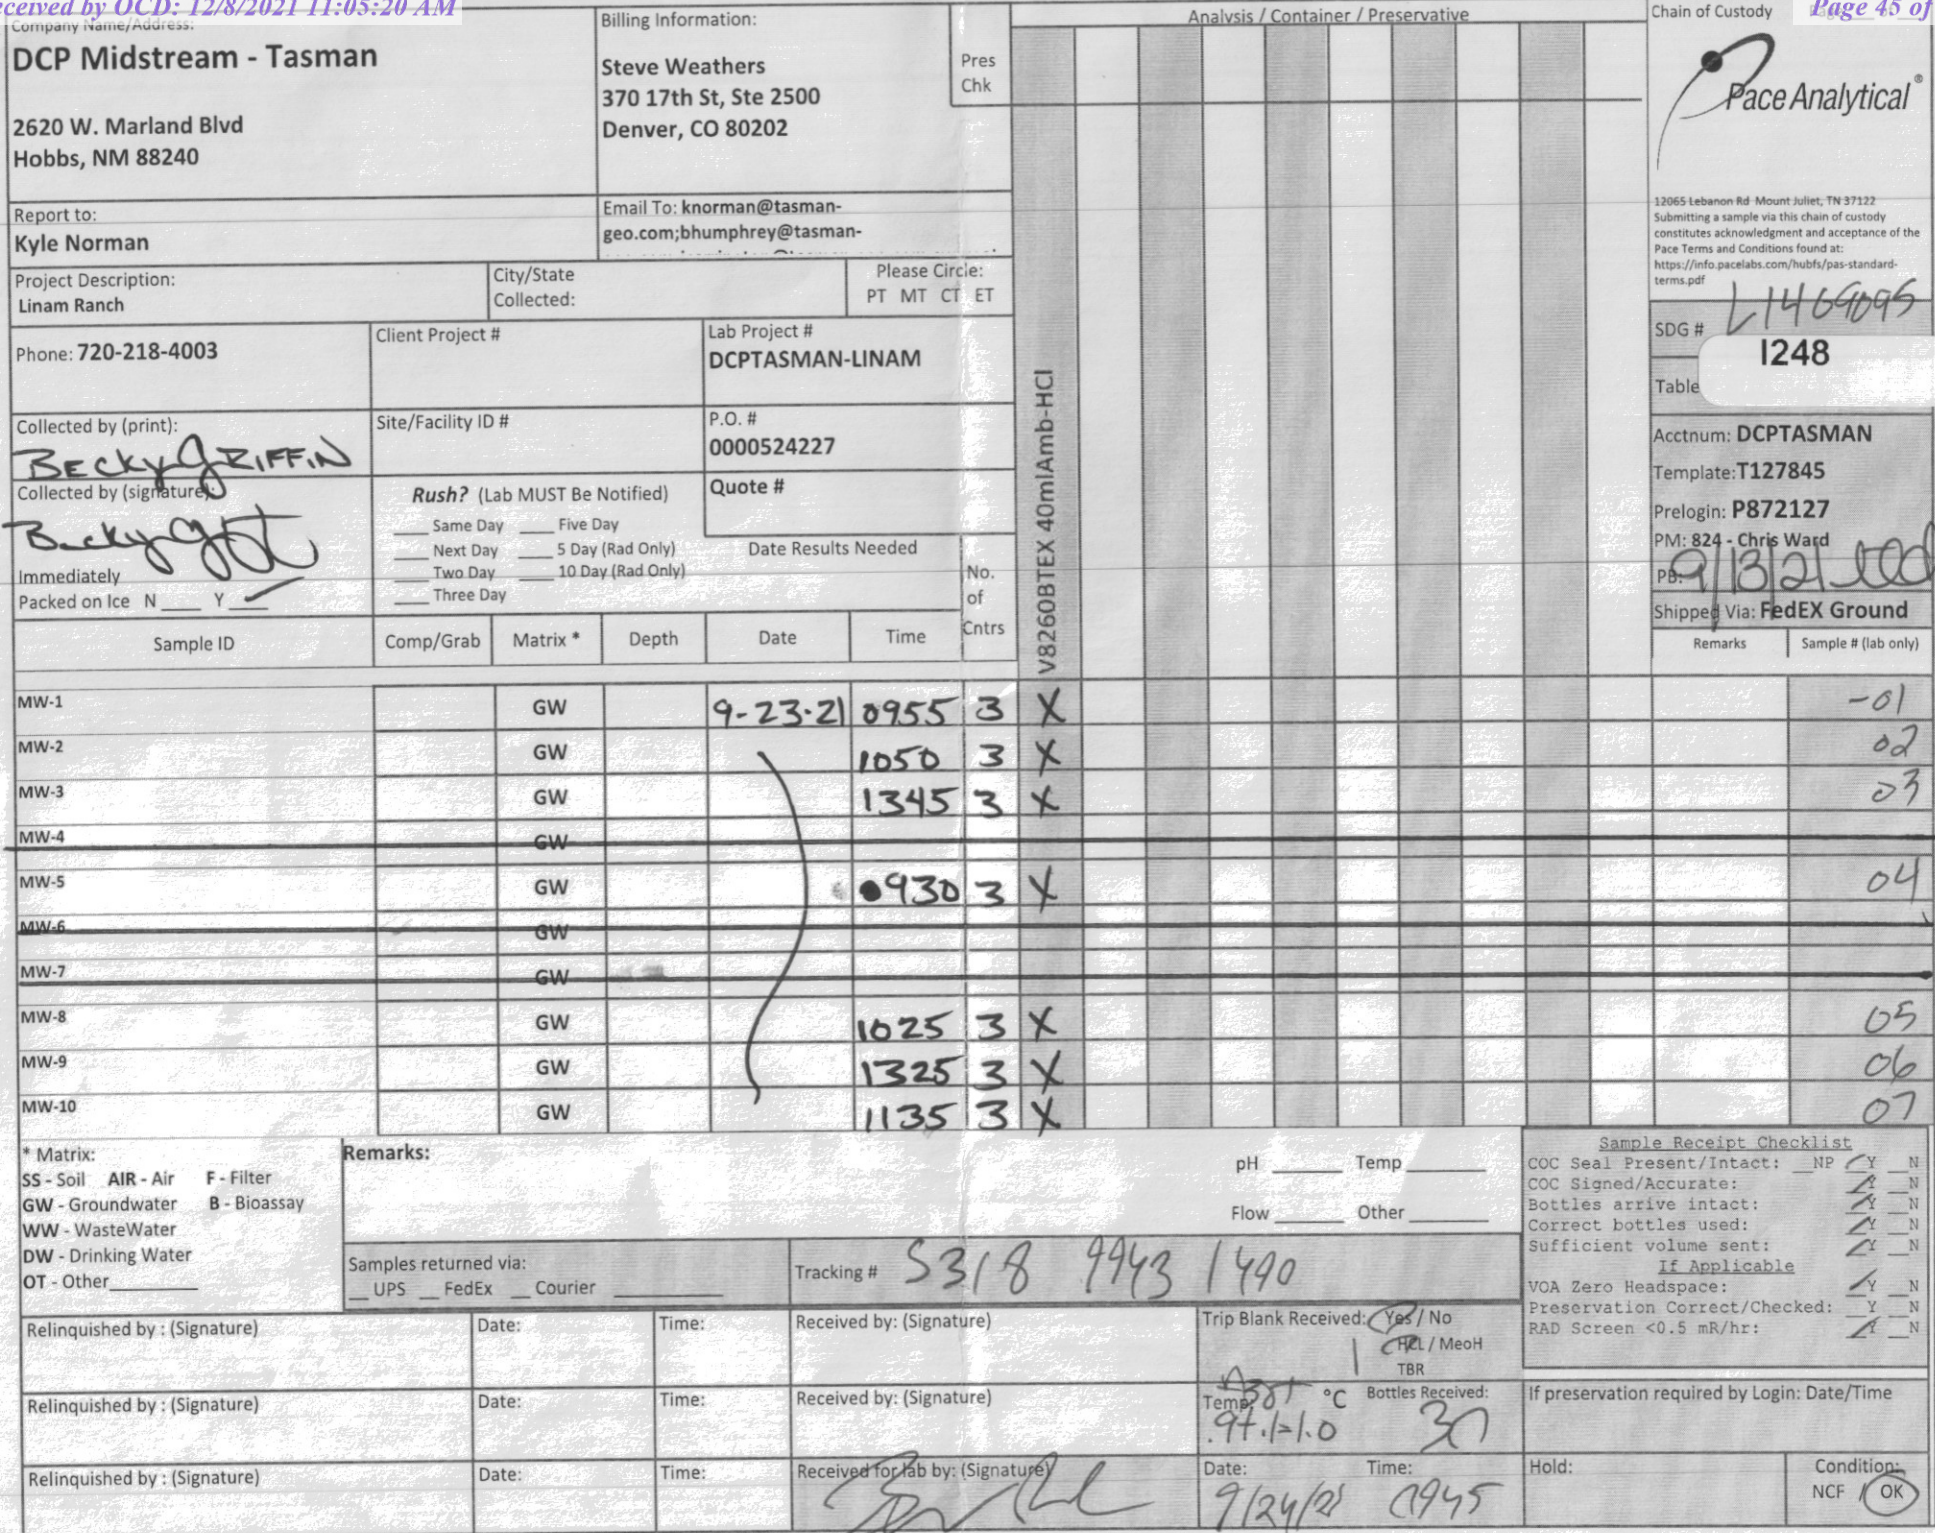 Received by OCD: 12/8/2021 11:05:20 AM
Page 45 of
Company Name/Address:
DCP Midstream - Tasman
2620 W. Marland Blvd
Hobbs, NM 88240
Billing Information:
Steve Weathers
370 17th St, Ste 2500
Denver, CO 80202
Pres
Chk
Analysis / Container / Preservative
Chain of Custody
Pace Analytical®
12065 Lebanon Rd Mount Juliet, TN 37122
Submitting a sample via this chain of custody
constitutes acknowledgment and acceptance of the
Pace Terms and Conditions found at:
https://info.pacelabs.com/hubfs/pas-standard-
terms.pdf
Report to:
Kyle Norman
Email To: knorman@tasman-
geo.com;bhumphrey@tasman-
Project Description:
Linam Ranch
City/State
Collected:
Please Circle:
PT MT CT ET
SDG # L1469095
1248
Table
Phone: 720-218-4003
Client Project #
Lab Project #
DCPTASMAN-LINAM
Collected by (print):
BECKY GRIFFIN
Site/Facility ID #
P.O. #
0000524227
Acctnum: DCPTASMAN
Template:T127845
Prelogin: P872127
PM: 824 - Chris Ward
PB: 9/13/21
Shipped Via: FedEX Ground
Collected by (signature):
Rush? (Lab MUST Be Notified)
___ Same Day ___ Five Day
___ Next Day ___ 5 Day (Rad Only)
___ Two Day ___ 10 Day (Rad Only)
___ Three Day
Quote #
Date Results Needed
Immediately
Packed on Ice N ___ Y ___
No.
of
Cntrs
V8260BTEX 40mlAmb-HCl
Sample ID Comp/Grab Matrix * Depth Date Time Remarks Sample # (lab only)
MW-1 GW 9-23-21 0955 3 X -01
MW-2 GW 1050 3 X 02
MW-3 GW 1345 3 X 03
MW-4 GW
MW-5 GW 0930 3 X 04
MW-6 GW
MW-7 GW
MW-8 GW 1025 3 X 05
MW-9 GW 1325 3 X 06
MW-10 GW 1135 3 X 07
* Matrix:
SS - Soil AIR - Air F - Filter
GW - Groundwater B - Bioassay
WW - WasteWater
DW - Drinking Water
OT - Other
Remarks:
pH ___ Temp ___
Flow ___ Other ___
Samples returned via:
__ UPS __ FedEx __ Courier
Tracking # 5318 9943 1490
Sample Receipt Checklist
COC Seal Present/Intact: __NP __Y __N
COC Signed/Accurate: __Y __N
Bottles arrive intact: __Y __N
Correct bottles used: __Y __N
Sufficient volume sent: __Y __N
If Applicable
VOA Zero Headspace: __Y __N
Preservation Correct/Checked: __Y __N
RAD Screen <0.5 mR/hr: __Y __N
Relinquished by : (Signature) Date: Time: Received by: (Signature)
Trip Blank Received: Yes / No
1 HCL / MeoH
TBR
Relinquished by : (Signature) Date: Time: Received by: (Signature)
Temp: °C Bottles Received:
.9+.1=1.0
If preservation required by Login: Date/Time
Relinquished by : (Signature) Date: Time: Received for lab by: (Signature)
Date: 9/24/21 Time: 0945
Hold:
Condition:
NCF / OK